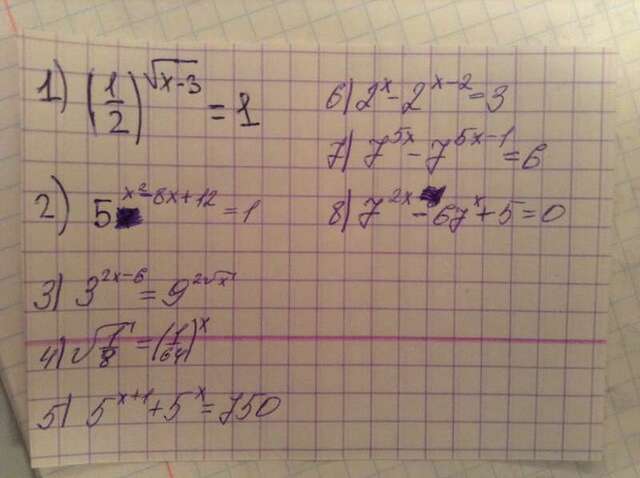 1) (1/2)^√(x-3) = 1
2) 5^(x²-8x+12) = 1
3) 3^(2x-6) = 9^(2√x)
4) √(1/8) = (1/64)^x
5) 5^(x+1) + 5^x = 750
6) 2^x - 2^(x-2) = 3
7) 7^(5x) - 7^(5x-1) = 6
8) 7^(2x) - 67^x + 5 = 0